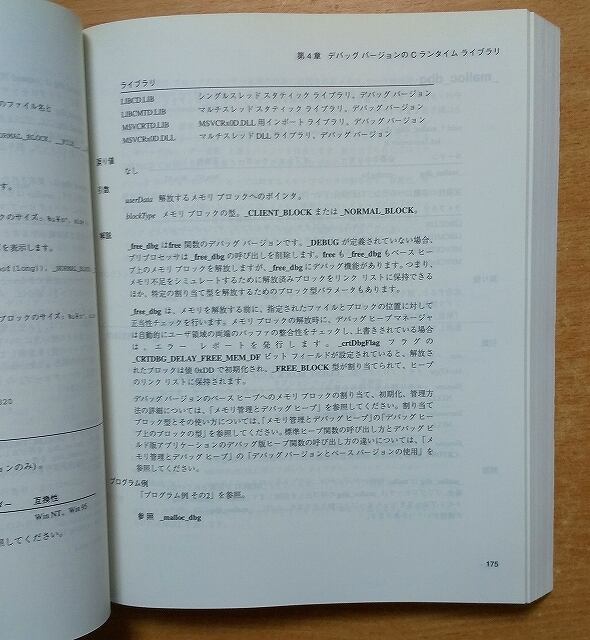 のファイル名と
NORMAL_BLOCK, __FILE__,
す。
クのサイズ: %u¥n",
を表示します。
of(long)), _NORMAL_
ブロックのサイズ: %u¥n",
020
ョンのみ)。
ダー 互換性
Win NT、Win 95
照してください。
第4章 デバッグ バージョンの C ランタイム ライブラリ
ライブラリ
LIBCD.LIB シングルスレッド スタティック ライブラリ、デバッグ バージョン
LIBCMTD.LIB マルチスレッド スタティック ライブラリ、デバッグ バージョン
MSVCRTD.LIB MSVCRx0D.DLL 用インポート ライブラリ、デバッグ バージョン
MSVCRx0D.DLL マルチスレッド DLL ライブラリ、デバッグ バージョン
戻り値
なし
引数
userData 解放するメモリ ブロックへのポインタ。
blockType メモリ ブロックの型。_CLIENT_BLOCK または _NORMAL_BLOCK。
解説
_free_dbg は free 関数のデバッグ バージョンです。_DEBUG が定義されていない場合、
プリプロセッサは _free_dbg の呼び出しを削除します。free も _free_dbg もベース ヒー
プ上のメモリ ブロックを解放しますが、_free_dbg にデバッグ機能があります。つまり、
メモリ不足をシミュレートするために解放済みブロックをリンク リストに保持できる
ほか、特定の割り当て型を解放するためのブロック型パラメータもあります。
_free_dbg は、メモリを解放する前に、指定されたファイルとブロックの位置に対して
正当性チェックを行います。メモリ ブロックの解放時に、デバッグ ヒープ マネージャ
は自動的にユーザ領域の両端のバッファの整合性をチェックし、上書きされている場合
は、エラー レポートを発行します。_crtDbgFlag フラグの
_CRTDBG_DELAY_FREE_MEM_DF ビット フィールドが設定されていると、解放さ
れたブロックは値 0xDD で初期化され、_FREE_BLOCK 型が割り当てられて、ヒープ
のリンク リストに保持されます。
デバッグ バージョンのベース ヒープへのメモリ ブロックの割り当て、初期化、管理方
法の詳細については、「メモリ管理とデバッグ ヒープ」を参照してください。割り当て
ブロック型とその使い方については、「メモリ管理とデバッグ ヒープ」の「デバッグ ヒー
プ上のブロックの型」を参照してください。標準ヒープ関数の呼び出し方とデバッグ ビ
ルド版アプリケーションのデバッグ版ヒープ関数の呼び出し方の違いについては、「メ
モリ管理とデバッグ ヒープ」の「デバッグ バージョンとベース バージョンの使用」を
参照してください。
プログラム例
「プログラム例 その2」を参照。
参照 _malloc_dbg
175